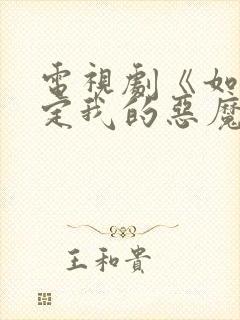 電視劇《如
定我的惡魔
王和貴